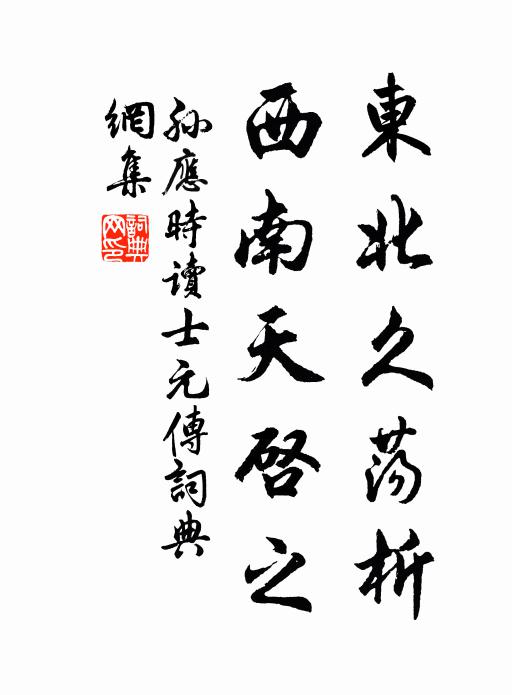 東北久蕩析
西南天啓之
孫應時讀士元傳詞典
網集
詞典網印